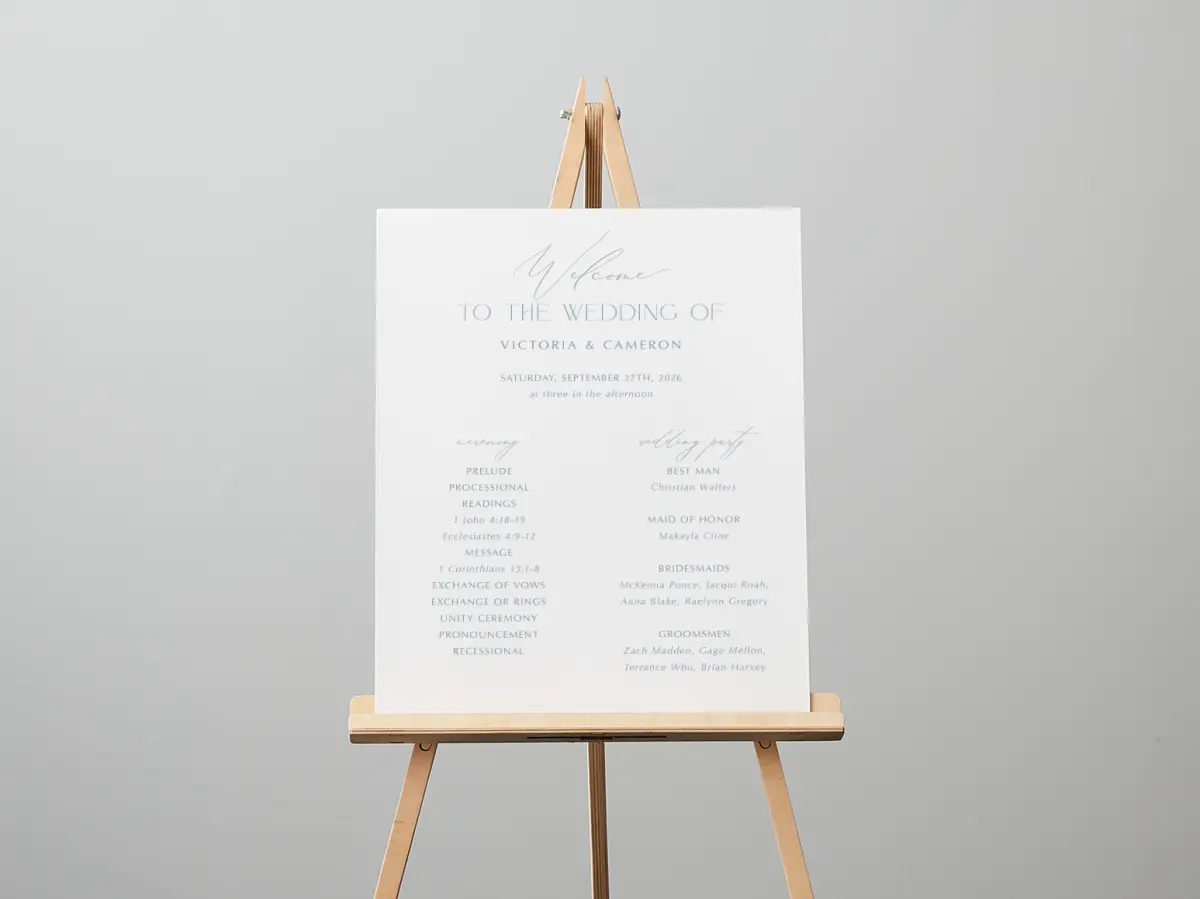 Welcome
TO THE WEDDING OF
VICTORIA & CAMERON
SATURDAY, SEPTEMBER 27TH, 2026
at three in the afternoon
ceremony
PRELUDE
PROCESSIONAL
READINGS
1 John 4:18-19
Ecclesiastes 4:9-12
MESSAGE
1 Corinthians 13:1-8
EXCHANGE OF VOWS
EXCHANGE OR RINGS
UNITY CEREMONY
PRONOUNCEMENT
RECESSIONAL
wedding party
BEST MAN
Christian Walters
MAID OF HONOR
Makayla Cline
BRIDESMAIDS
McKenna Ponce, Jacqui Roah,
Anna Blake, Raelynn Gregory
GROOMSMEN
Zach Madden, Gage Mellon,
Terrance Whu, Brian Harvey